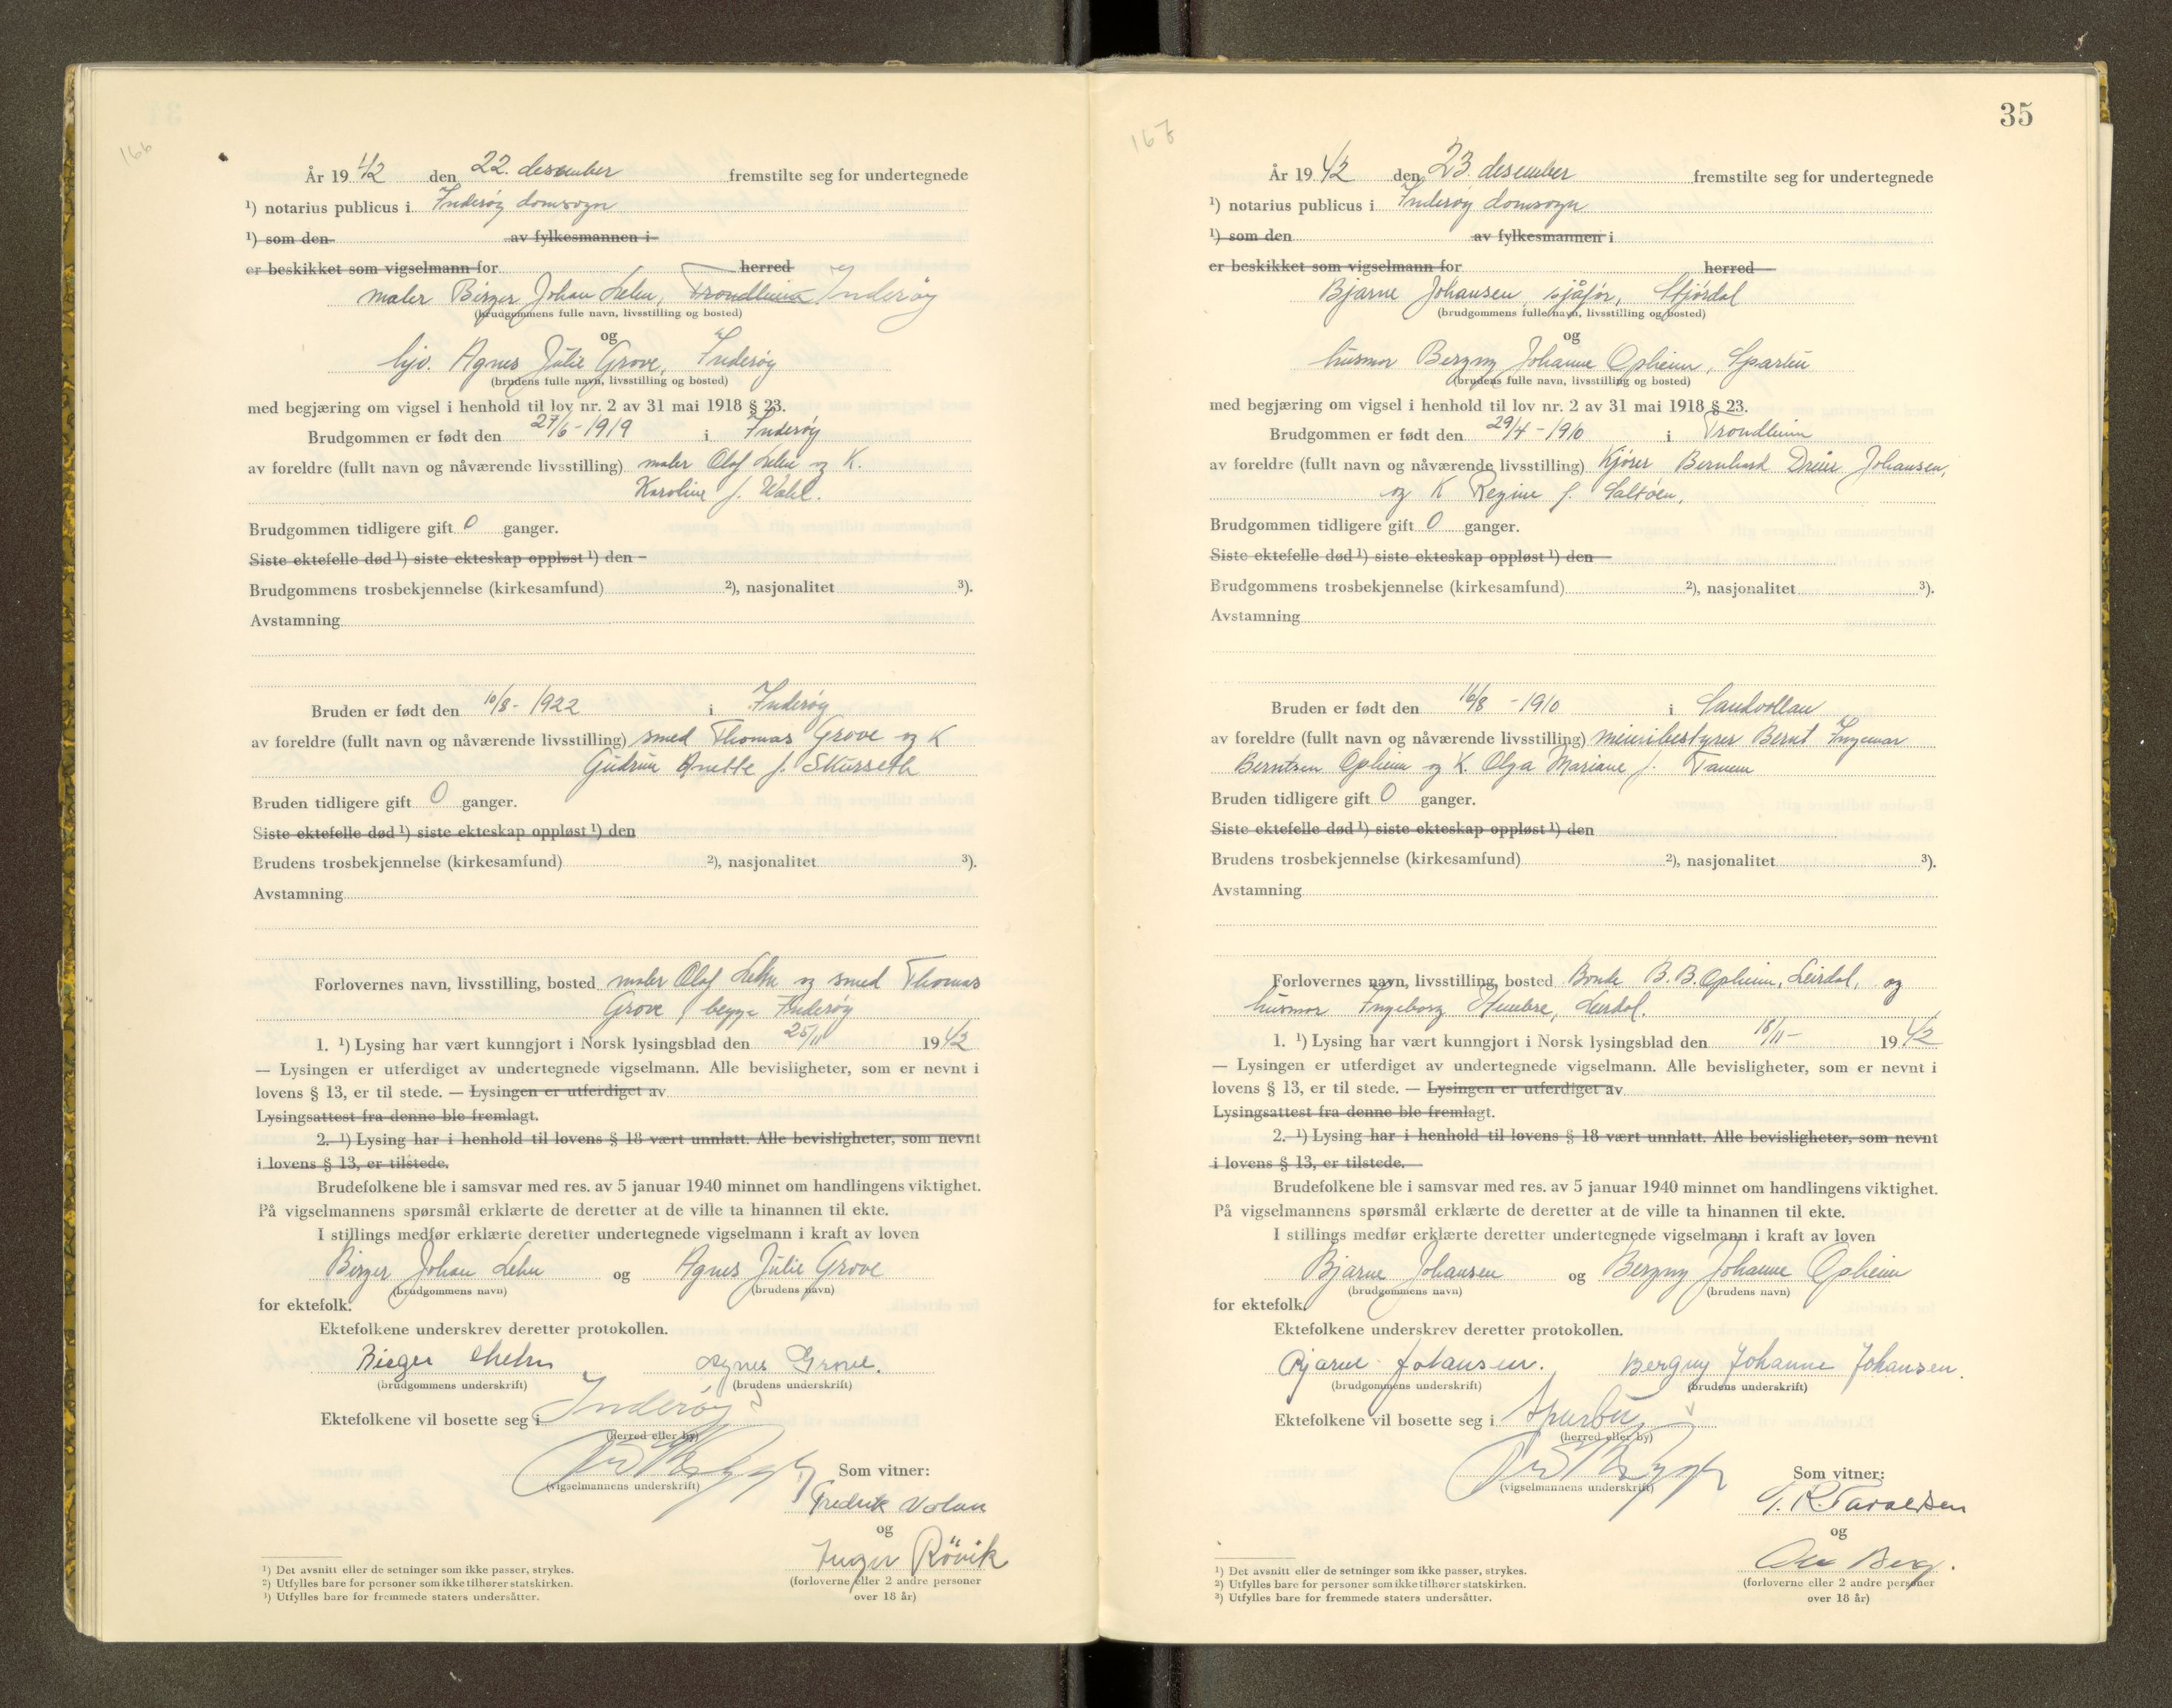 166
År 19 42 den 22. desember fremstilte seg for undertegnede
¹) notarius publicus i Inderøy domsogn
¹) som den av fylkesmannen i
er beskikket som vigselmann for herred
maler Birger Johan Lehn, Trondheim Inderøy
(brudgommens fulle navn, livsstilling og bosted)
og
hjv. Agnes Julie Grove, Inderøy
(brudens fulle navn, livsstilling og bosted)
med begjæring om vigsel i henhold til lov nr. 2 av 31 mai 1918 § 23.
Brudgommen er født den 27/6 - 1919 i Inderøy
av foreldre (fullt navn og nåværende livsstilling) maler Olaf Lehn og K.
Karoline f. Wahl.
Brudgommen tidligere gift 0 ganger.
Siste ektefelle død ¹) siste ekteskap oppløst ¹) den
Brudgommens trosbekjennelse (kirkesamfund) ²), nasjonalitet ³).
Avstamning
Bruden er født den 10/8 - 1922 i Inderøy
av foreldre (fullt navn og nåværende livsstilling) smed Thomas Grove og K
Gudrun Anette f. Skursseth
Bruden tidligere gift 0 ganger.
Siste ektefelle død ¹) siste ekteskap oppløst ¹) den
Brudens trosbekjennelse (kirkesamfund) ²), nasjonalitet ³).
Avstamning
Forlovernes navn, livsstilling, bosted maler Olaf Lehn og smed Thomas
Grove, begge Inderøy
1. ¹) Lysing har vært kunngjort i Norsk lysingsblad den 25/11 19 42
— Lysingen er utferdiget av undertegnede vigselmann. Alle bevisligheter, som er nevnt i
lovens § 13, er til stede. — Lysingen er utferdiget av
Lysingsattest fra denne ble fremlagt.
2. ¹) Lysing har i henhold til lovens § 18 vært unnlatt. Alle bevisligheter, som nevnt
i lovens § 13, er tilstede.
Brudefolkene ble i samsvar med res. av 5 januar 1940 minnet om handlingens viktighet.
På vigselmannens spørsmål erklærte de deretter at de ville ta hinannen til ekte.
I stillings medfør erklærte deretter undertegnede vigselmann i kraft av loven
Birger Johan Lehn og Agnes Julie Grove
(brudgommens navn) (brudens navn)
for ektefolk.
Ektefolkene underskrev deretter protokollen.
Birger Lehn Agnes Grove.
(brudgommens underskrift) (brudens underskrift)
Ektefolkene vil bosette seg i Inderøy
(herred eller by)
(vigselmannens underskrift)
Som vitner:
Fredrik Volan
og
Inger Rövik
(forloverne eller 2 andre personer
over 18 år)
¹) Det avsnitt eller de setninger som ikke passer, strykes.
²) Utfylles bare for personer som ikke tilhører statskirken.
³) Utfylles bare for fremmede staters undersåtter.
35
167
År 19 42 den 23. desember fremstilte seg for undertegnede
¹) notarius publicus i Inderøy domsogn
¹) som den av fylkesmannen i
er beskikket som vigselmann for herred
Bjarne Johansen, sjåfør, Stjørdal
(brudgommens fulle navn, livsstilling og bosted)
og
husmor Bergny Johanne Opheim, Sparbu
(brudens fulle navn, livsstilling og bosted)
med begjæring om vigsel i henhold til lov nr. 2 av 31 mai 1918 § 23.
Brudgommen er født den 29/4 - 1910 i Trondheim
av foreldre (fullt navn og nåværende livsstilling) Kjører Bernhard Dreier Johansen,
og K Regine f. Saltøen,
Brudgommen tidligere gift 0 ganger.
Siste ektefelle død ¹) siste ekteskap oppløst ¹) den
Brudgommens trosbekjennelse (kirkesamfund) ²), nasjonalitet ³).
Avstamning
Bruden er født den 16/8 - 1910 i Sandvollan
av foreldre (fullt navn og nåværende livsstilling) meieribestyrer Bernt Ingemar
Berntsen Opheim og K. Olga Mariane f. Tanem
Bruden tidligere gift 0 ganger.
Siste ektefelle død ¹) siste ekteskap oppløst ¹) den
Brudens trosbekjennelse (kirkesamfund) ²), nasjonalitet ³).
Avstamning
Forlovernes navn, livsstilling, bosted Bonde B. B. Opheim, Leirdal, og
husmor Ingeborg Hembre, Leirdal.
1. ¹) Lysing har vært kunngjort i Norsk lysingsblad den 18/11 - 19 42
— Lysingen er utferdiget av undertegnede vigselmann. Alle bevisligheter, som er nevnt i
lovens § 13, er til stede. — Lysingen er utferdiget av
Lysingsattest fra denne ble fremlagt.
2. ¹) Lysing har i henhold til lovens § 18 vært unnlatt. Alle bevisligheter, som nevnt
i lovens § 13, er tilstede.
Brudefolkene ble i samsvar med res. av 5 januar 1940 minnet om handlingens viktighet.
På vigselmannens spørsmål erklærte de deretter at de ville ta hinannen til ekte.
I stillings medfør erklærte deretter undertegnede vigselmann i kraft av loven
Bjarne Johansen og Bergny Johanne Opheim
(brudgommens navn) (brudens navn)
for ektefolk.
Ektefolkene underskrev deretter protokollen.
Bjarne Johansen. Bergny Johanne Johansen.
(brudgommens underskrift) (brudens underskrift)
Ektefolkene vil bosette seg i Sparbu
(herred eller by)
(vigselmannens underskrift)
Som vitner:
og
Berg.
(forloverne eller 2 andre personer
over 18 år)
¹) Det avsnitt eller de setninger som ikke passer, strykes.
²) Utfylles bare for personer som ikke tilhører statskirken.
³) Utfylles bare for fremmede staters undersåtter.